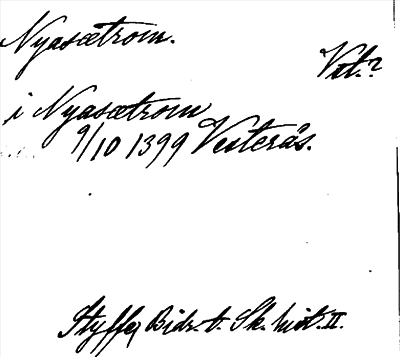 Nyasætrom.
Vit.?
i Nyasætrom
9/10 1399 Vesterås.
Styffe, Bidr. t. Sk. hist. II.